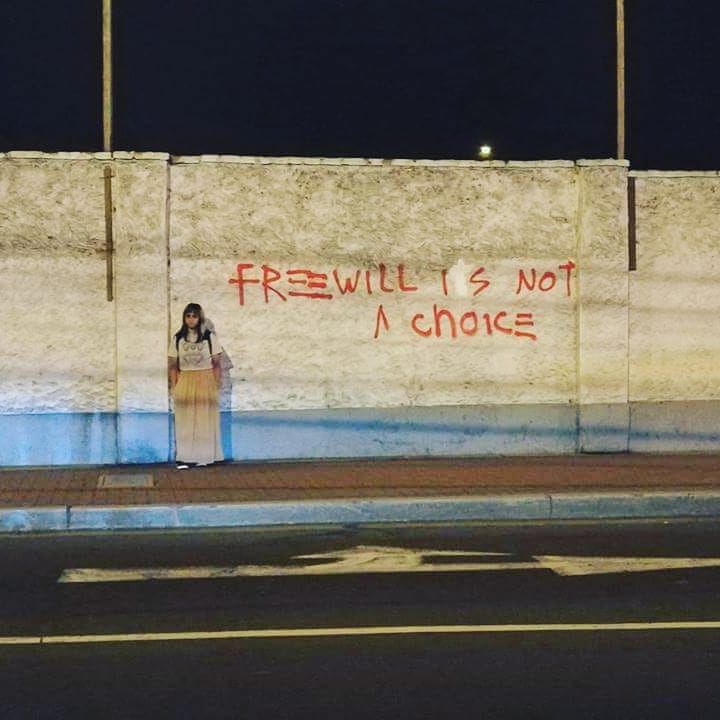 FREEWILL IS NOT
A CHOICE